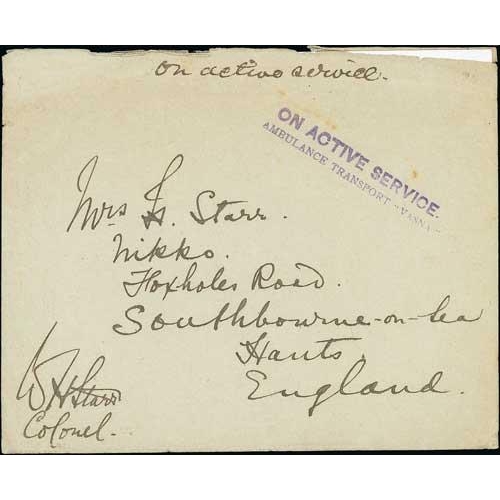 On active service.
ON ACTIVE SERVICE.
AMBULANCE TRANSPORT "VASNA"
Mrs H. Starr.
Nikko.
Foxholes Road.
Southbourne-on-Sea
Hants
England.
W H Starr
Colonel.